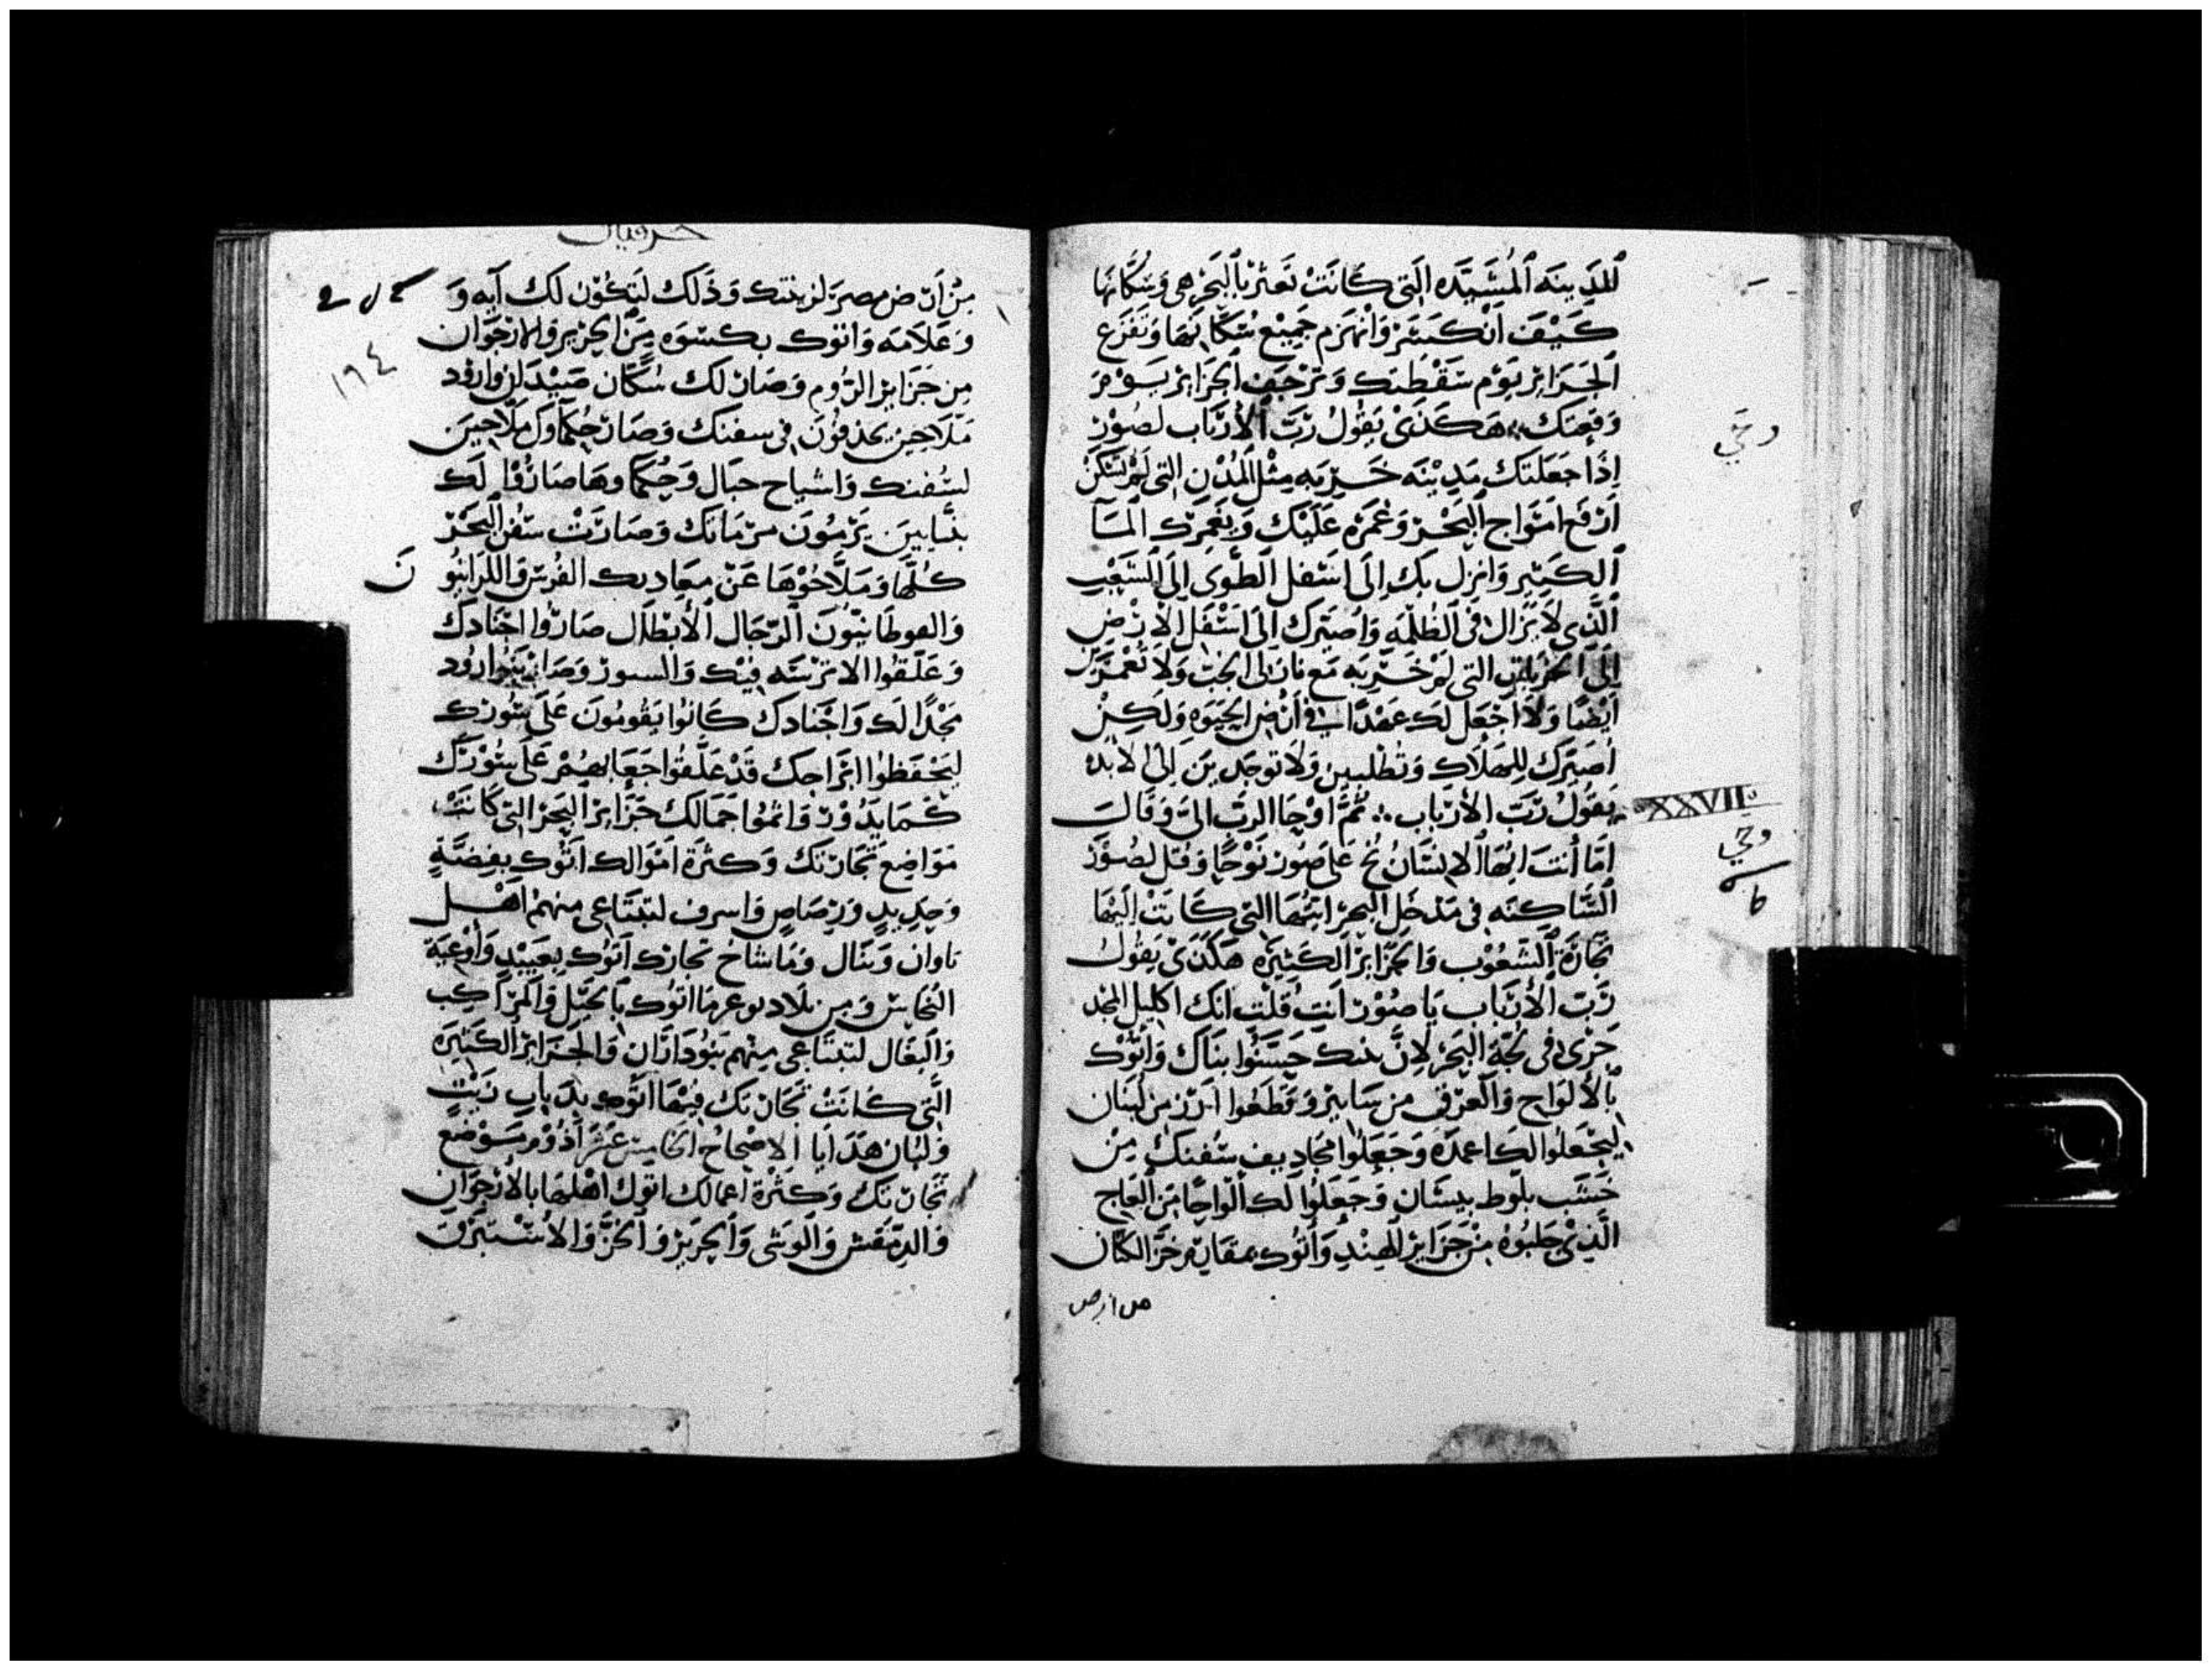 المدينه المشيده التي كانت تعثر بالبحر هي وسكانها
كيف انكسر وانهزم جميع سكانها وتفزع
الجزاير يوم سقطتك وترجف الجزاير يوم
وقعتك هكذي يقول رب الارباب لصور
اذا جعلتك مدينه خربه مثل المدن التي لم تسكن
ارفع امواج البحر وغمره عليك ويغمرك الما
الكثير وانزل بك الى اسفل الطوى الى الشعب
الذي لا يزال في الظلمه واصيرك الى اسفل الارض
الى التي لم خربه مع الى الجب ولا تعمر
ايضا ولا اجعل لك عهدا في ارض الحيوه ولكن
اصيرك للهلاك وتطلبين ولا توجدين الى الابد
يقول رب الارباب ثم اوحا الرب الي وقال
XXVII
اما أنت ايها الانسان نح على صور نوحا وقل لصور
الساكنه في مدخل البحر ايتها التي كانت اليها
تجارة الشعوب والجزاير الكثيره هكذي يقول
رب الارباب يا صور انت قلت انك اكليل المجد
جزى في لجة البحر لان بنيك حسنوا بناك واتوك
بالالواح والعرق من سابير وقطعوا ارز من لبنان
ليجعلوا لك اعمدة وجعلوا مجاديف سفنك من
خشب بلوط بيسان وجعلوا لك الواحا من العاج
الذي جلبوه من جزاير الهند واتوك خز الكتان
من ارض
حزقيال
من ارض مصر لزينتك وذلك لتكون لك آيه و
١٩٤
وعلامه واتوك بكسوه من الحرير والارجوان
من جزاير الروم وصار لك سكان صيدان وارود
ملاحين يجذفون في سفنك وصار حكماوك ملاحين
لسفنك واشياح حبال وحكماوها صاروا لك
يرمون مرماتك وصارت سفن البحر
كلها وملاحوها عن الفرس واللرانيو
ن
والفوطانيون الرجال الابطال صاروا اجنادك
وعلقوا الاترسه فيك والسور ارود
مجدا لك واجنادك كانوا يقومون على سورك
ليحفظوا ابراجك قد علقوا جعابهم على سورك
كما يدور واتموا جمالك جزاير البحر التي كانت
مواضع تجارتك وكثرة اموالك اتوك بفضة
وحديد ورصاص واسرف لتبتاعي منهم اهل
ياوان وبتال وماشاخ تجارك اتوك بعبيد وأوعية
النحاس ومن بلاد توغرما اتوك بالخيل والمراكب
والبغال لتبتاعي منهم بنو دادان والجزاير الكثيره
التي كانت تجارتك فيها اتوك زيت
ولبان هدايا الاصحاح الخامس عشر ادوم موضع
تجارتك وكثرة اعمالك اتوك اهلها بالارجوان
والدمقس والوشى والحرير والخز والاستبرق